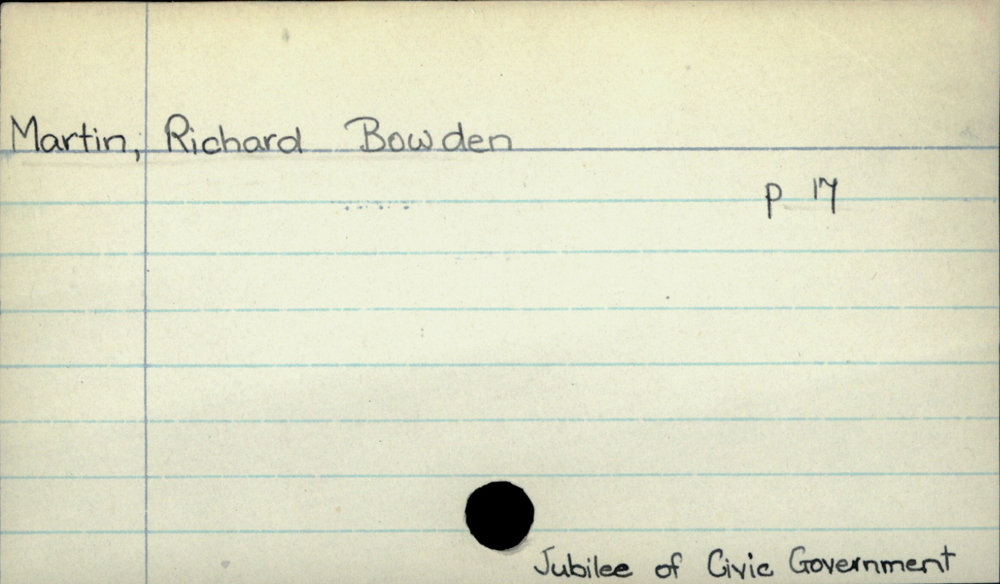 Martin, Richard Bowden
p 17
Jubilee of Civic Government